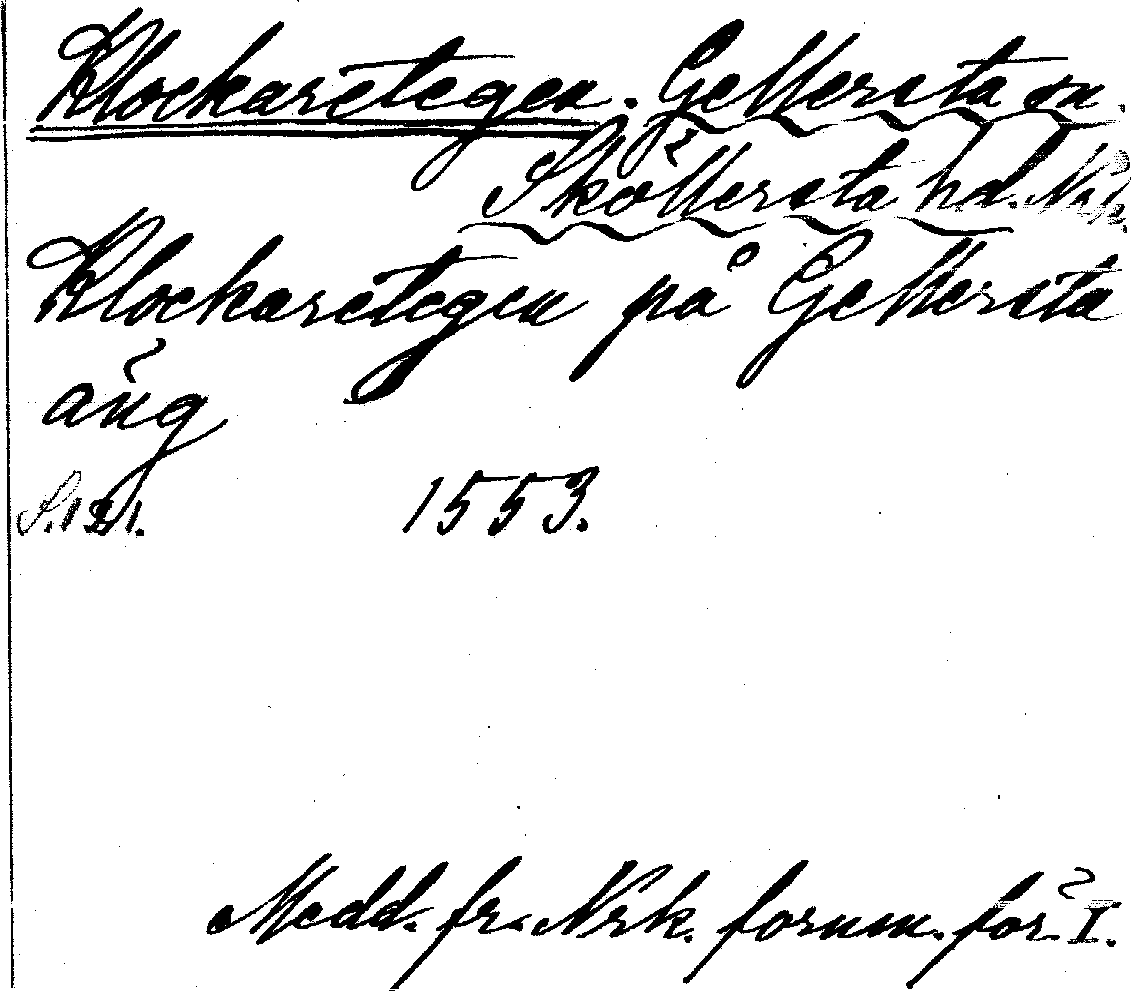 Klockaretegen. Gellersta sn.
Sköllersta hd. Närke.
Klockaretegen på Gellersta
äng
S. 121. 1553.
Medd. fr. Nrk. fornm. för. I.